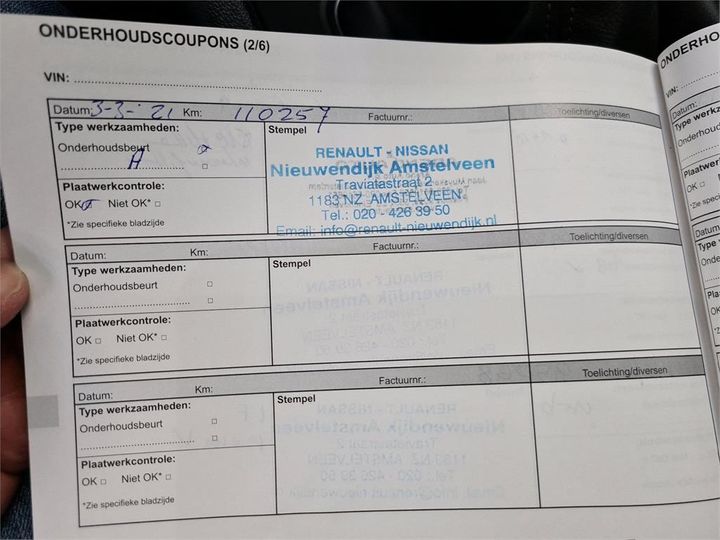 ONDERHOUDSCOUPONS (2/6)
VIN:
Datum: 3-3-'21 Km: 110257 Factuurnr.: Toelichting/diversen
Type werkzaamheden: Stempel
Onderhoudsbeurt
A
Plaatwerkcontrole:
OK Niet OK*
*Zie specifieke bladzijde
RENAULT - NISSAN
Nieuwendijk Amstelveen
Traviatastraat 2
1183 NZ AMSTELVEEN
Tel.: 020 - 426 39 50
Email: info@renault-nieuwendijk.nl
Datum: Km: Factuurnr.: Toelichting/diversen
Type werkzaamheden: Stempel
Onderhoudsbeurt
Plaatwerkcontrole:
OK Niet OK*
*Zie specifieke bladzijde
Datum: Km: Factuurnr.: Toelichting/diversen
Type werkzaamheden: Stempel
Onderhoudsbeurt
Plaatwerkcontrole:
OK Niet OK*
*Zie specifieke bladzijde
ONDERHO
VIN:
Datum:
Type werkz
Onderhoud
Plaatwerkc
OK
*Zie specif
Datum
Type w
Onder
Plaat
OK
*Zie